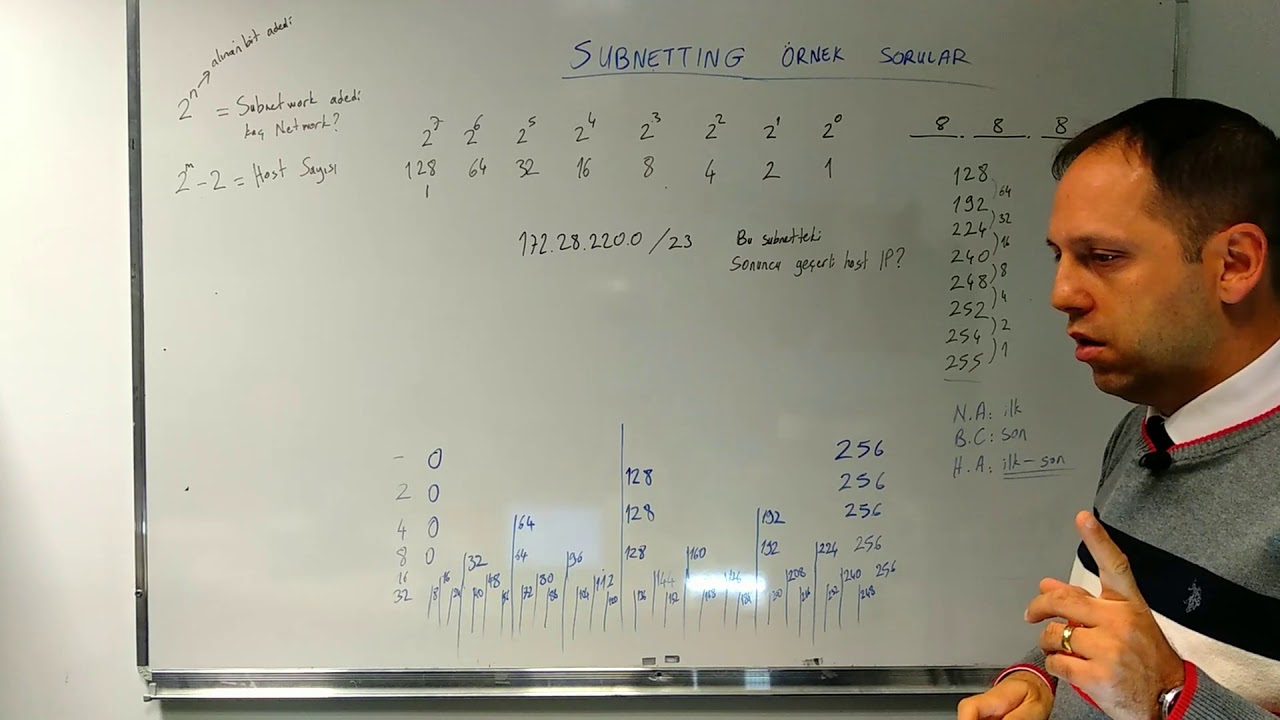 SUBNETTING ÖRNEK SORULAR
2^n → alınan bit adedi
= Subnetwork adedi
kaç Network?
2^m - 2 = Host Sayısı
2^7 2^6 2^5 2^4 2^3 2^2 2^1 2^0
128 64 32 16 8 4 2 1
1
8 . 8 . 8
172.28.220.0 /23
Bu subnetteki
Sonuncu geçerli host IP?
128
192 ) 64
224 ) 32
240 ) 16
248 ) 8
252 ) 4
254 ) 2
255 ) 1
N.A: ilk
B.C: son
H.A: ilk - son
- 0 256
2 0 128 256
4 0 64 128 192 256
8 0 32 64 96 128 160 192 224 256
16 16 48 80 112 144 208 240 256
32 8 72 248